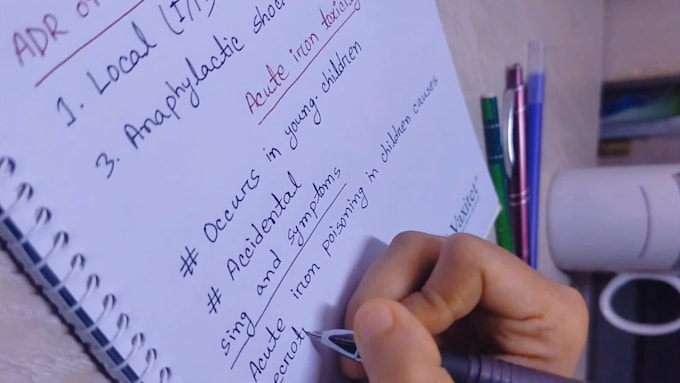 ADR of
1. Local (I/
3. Anaphylactic shoc
Acute iron toxicity
# Occurs in young children
# Accidental
sing and symptoms
Acute iron poisoning in children causes
ecrot